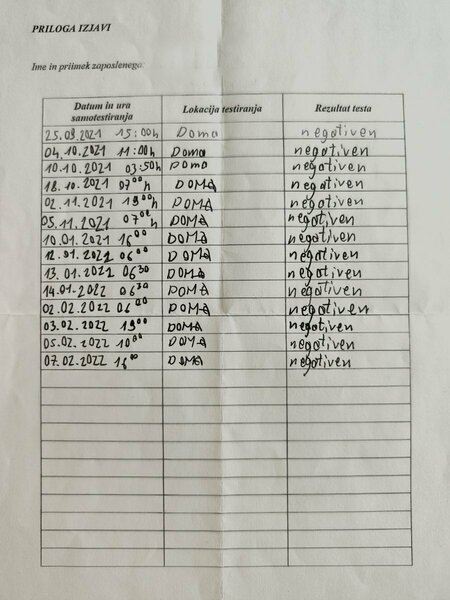 PRILOGA IZJAVI
Ime in priimek zaposlenega:
Datum in ura samotestiranja Lokacija testiranja Rezultat testa
25.09.2021 15:00h Doma negativen
04.10.2021 11:00h Doma negativen
10.10.2021 03:50h Doma negativen
18.10.2021 07⁰⁰h DOMA negativen
02.11.2021 19⁰⁰h DOMA negativen
05.11.2021 07⁰⁰h DOMA negativen
10.01.2021 16⁰⁰ DOMA negativen
12.01.2021 06⁰⁰ DOMA negativen
13.01.2022 06³⁰ DOMA negativen
14.01.2022 06³⁰ DOMA negativen
02.02.2022 06⁰⁰ DOMA negativen
03.02.2022 19⁰⁰ DOMA negativen
05.02.2022 10⁰⁰ DOMA negativen
07.02.2022 16⁰⁰ DOMA negativen